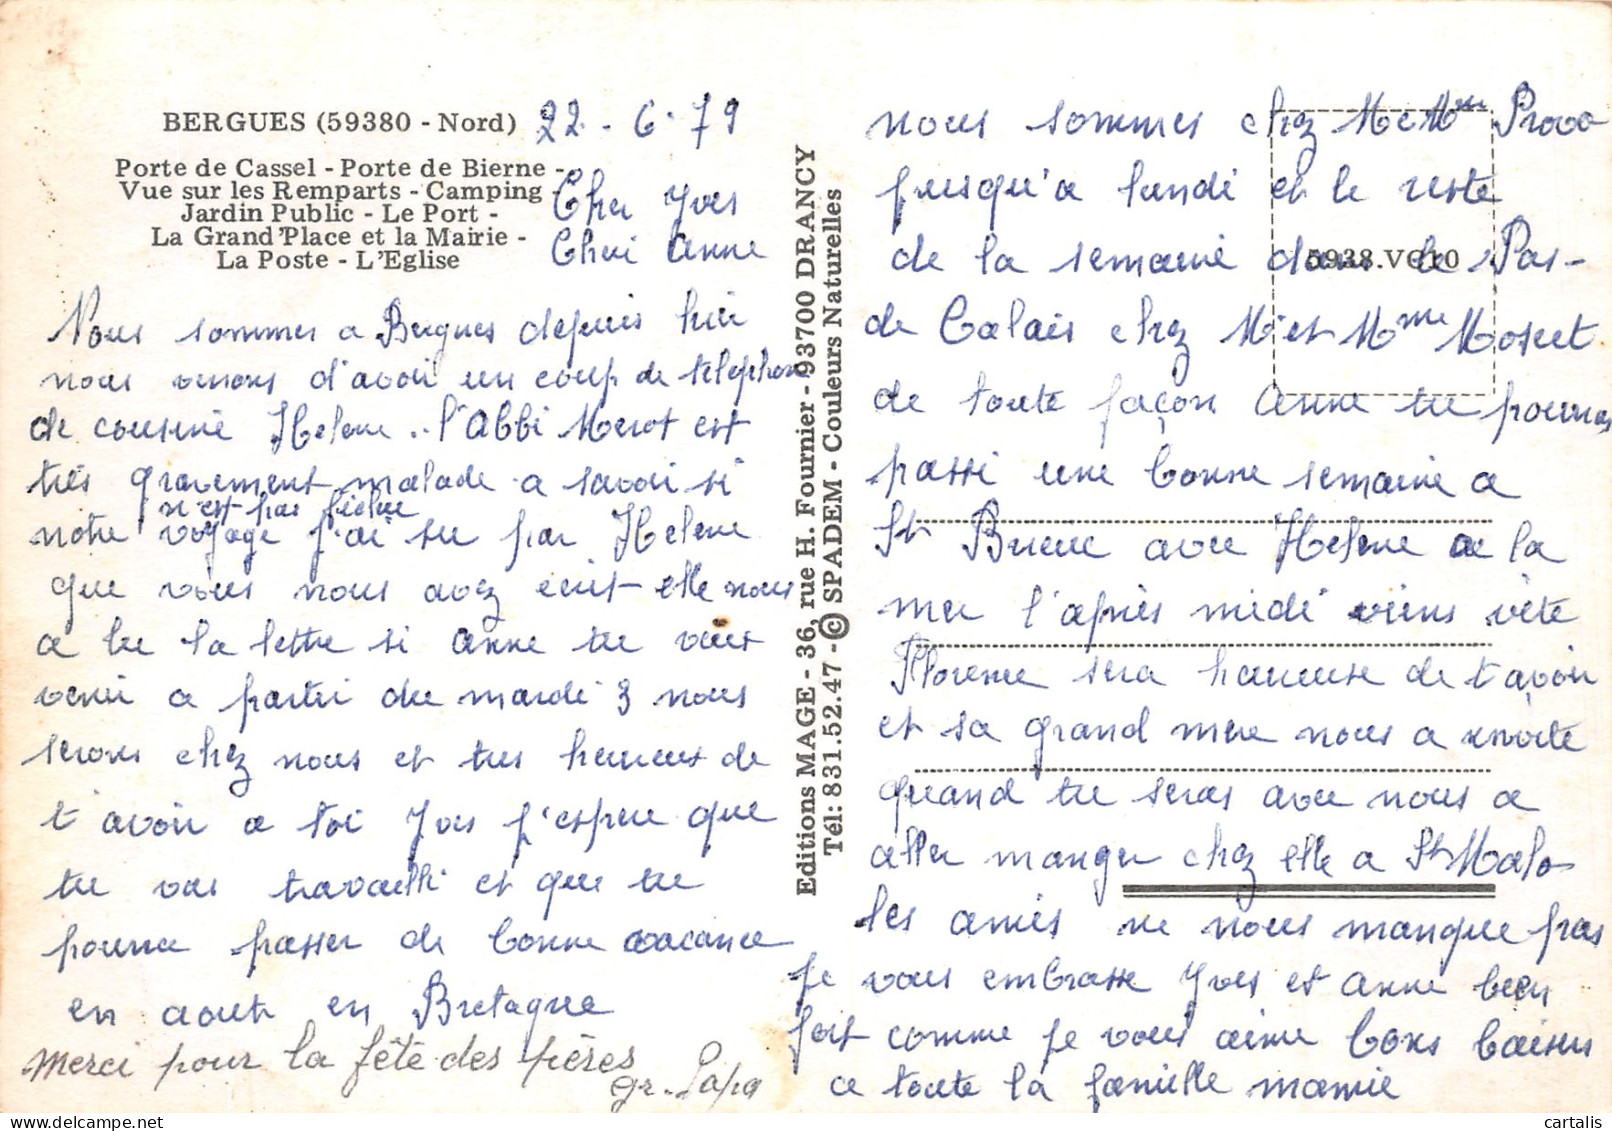 BERGUES (59380 - Nord)
Porte de Cassel - Porte de Bierne -
Vue sur les Remparts - Camping
Jardin Public - Le Port -
La Grand'Place et la Mairie -
La Poste - L'Eglise
22 - 6. 79
Cher Yves
Cheri Anne
Nous sommes a Bergues depuis hier
nous venons d'avoir un coup de telephone
de cousine Helene.. l'Abbi Merot est
très gravement malade a savoir si
n'est pas fichue
notre voyage j'ai su par Helene
que vous nous avez ecrit elle nous
a lu la lettre si Anne tu veux
venir a partir du mardi 3 nous
serons chez nous et tres heureus de
t'avoir a toi Yves j'espere que
tu vas travailli et que tu
pourra passer de bonne vacance
en aout en Bretagne
Merci pour la fête des pères
gr. Papa
Editions MAGE - 36, rue H. Fournier - 93700 DRANCY
Tél: 831.52.47 - © SPADEM - Couleurs Naturelles
5938.VG10
nous sommes chez M et Mme Provo
jusqu'a lundi et le reste
de la semaine dans le Pas-
de Calais chez M et Mme
de toute façon Anne tu pourras
passé une bonne semaine a
St Brieuc avec Helene a la
mer l'après midi viens vite
Florence sera heureuse de t'avoir
et sa grand mere nous a invite
quand tu seras avec nous a
aller manger chez elle a St Malo
les amis ne nous manque pas
je vous embrasse Yves et Anne bien
fort comme je vous aime bons baisers
a toute la famille mamie
cartalis